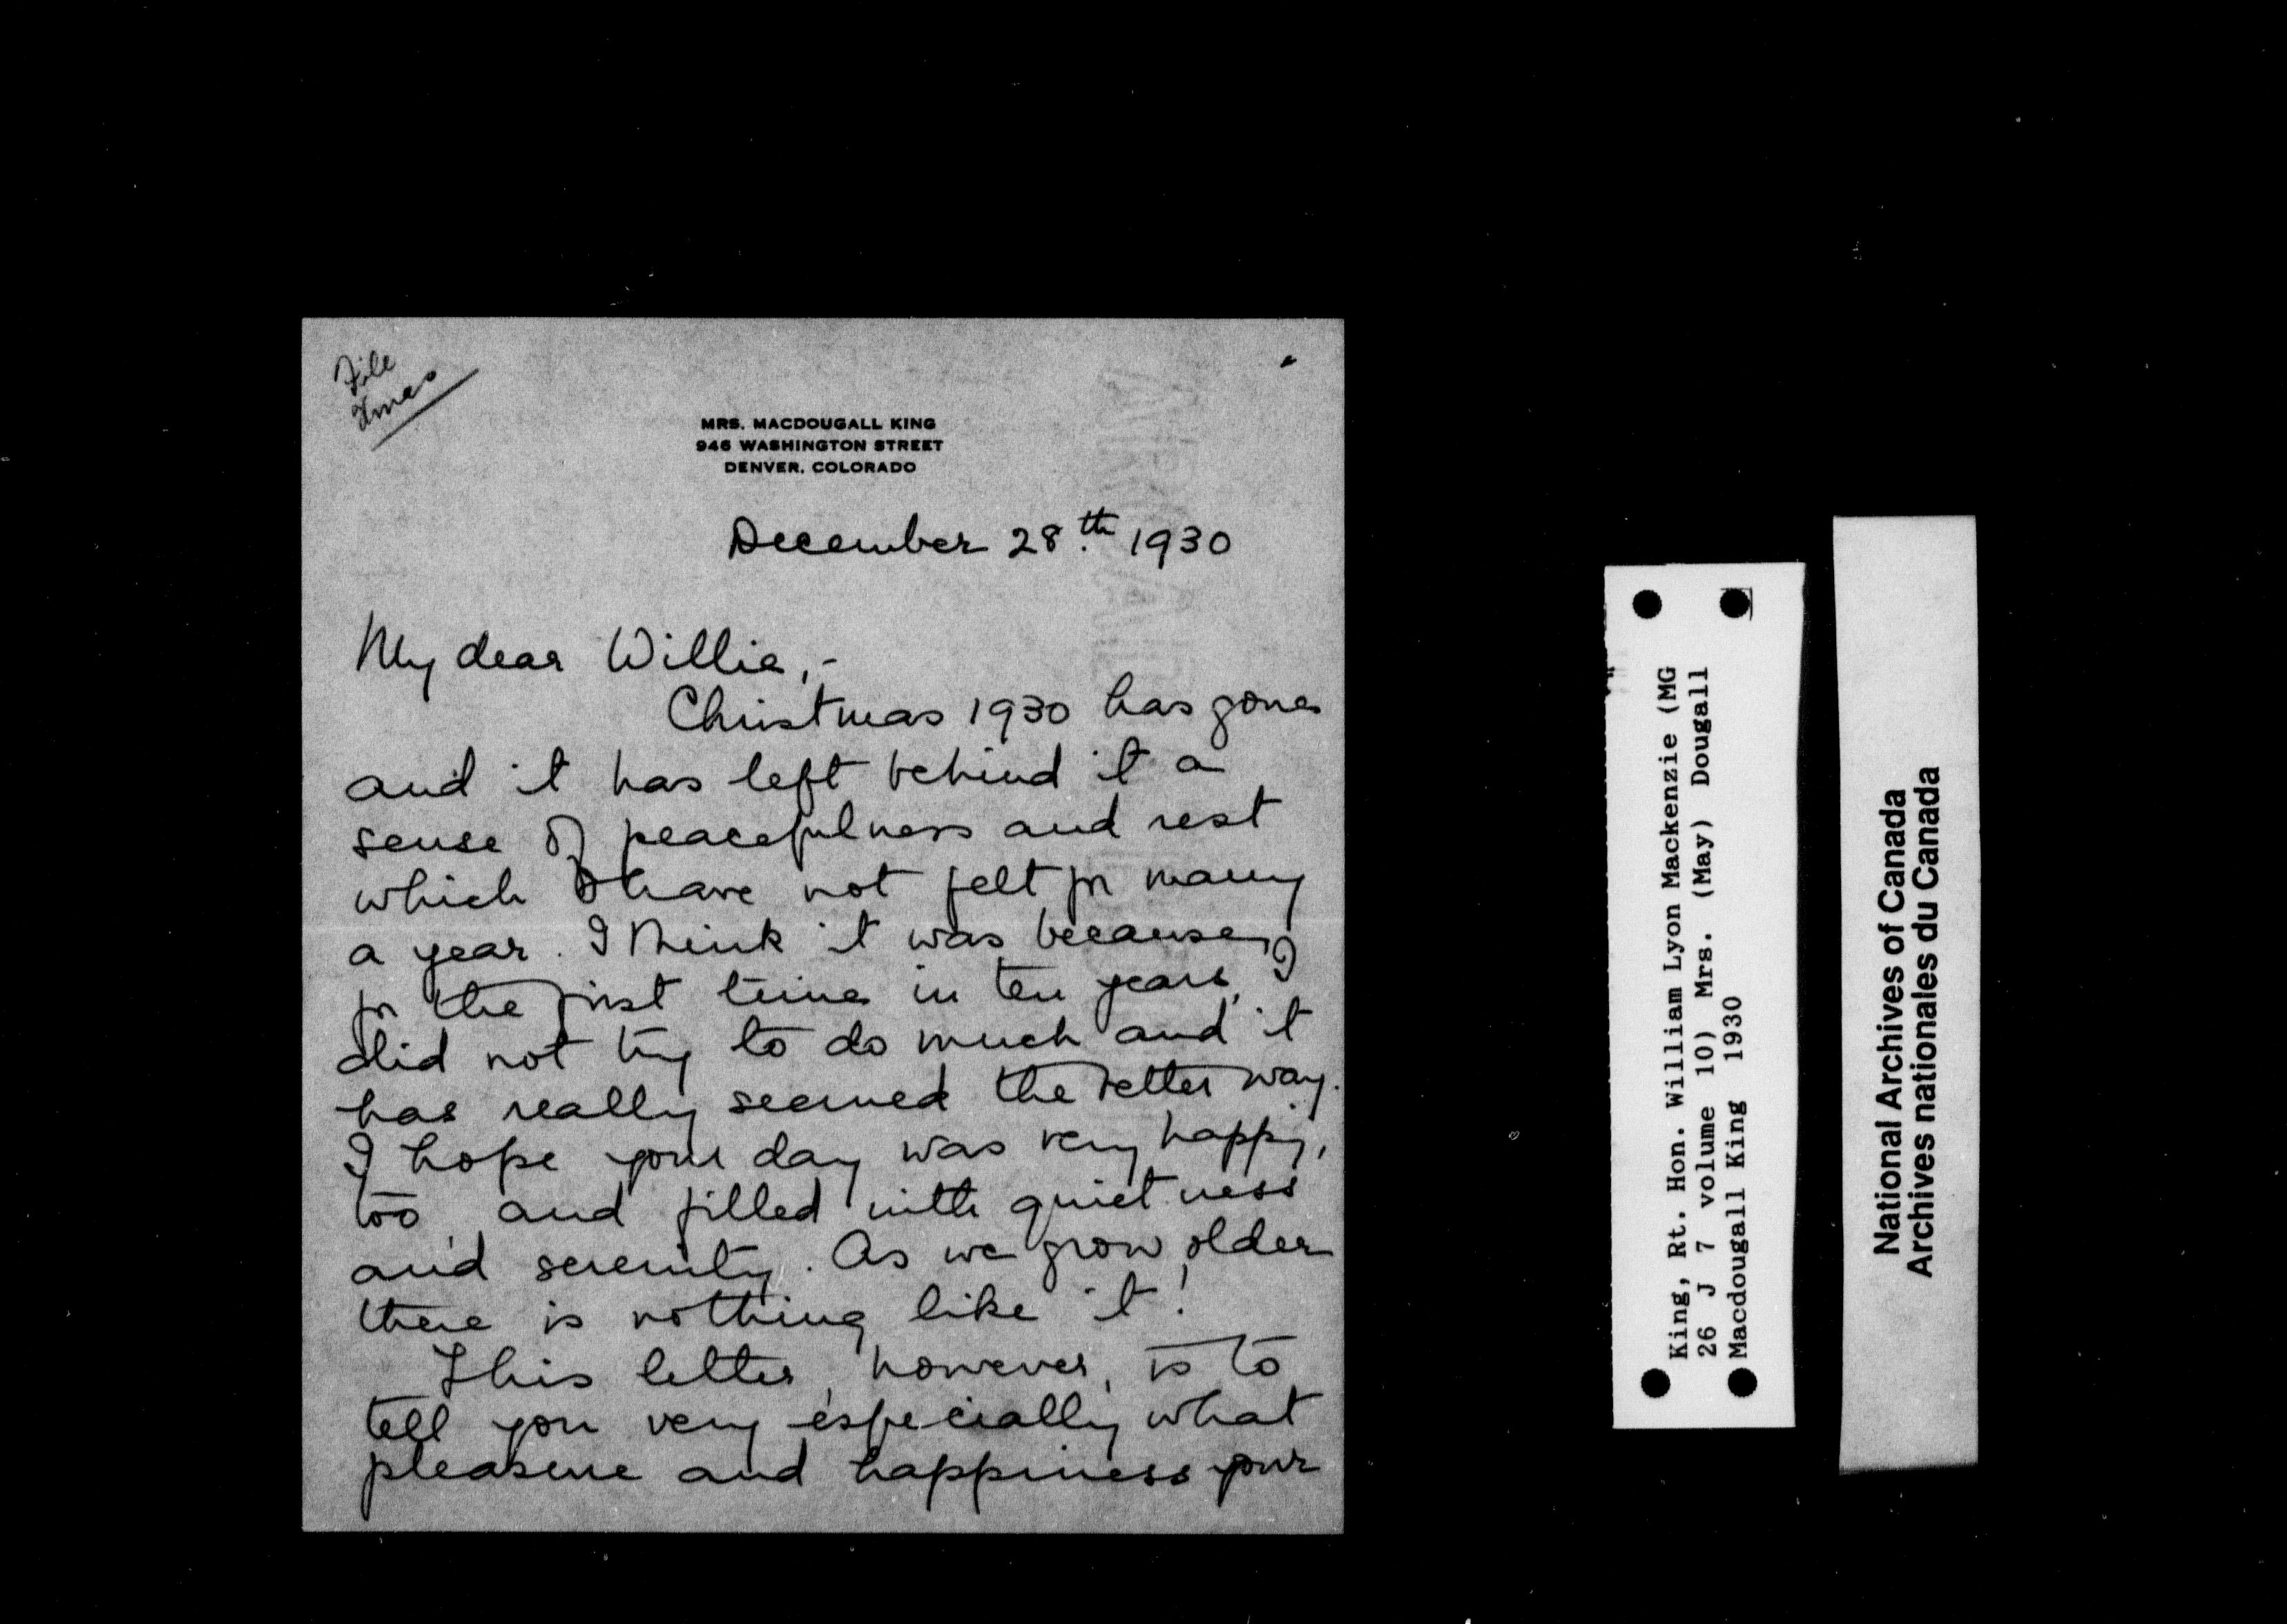 File
Xmas
MRS. MACDOUGALL KING
946 WASHINGTON STREET
DENVER, COLORADO
December 28th 1930
My dear Willie,-
Christmas 1930 has gone
and it has left behind it a
sense of peacefulness and rest
which I have not felt for many
a year. I think it was because,
for the first time in ten years, I
did not try to do much and it
has really seemed the better way.
I hope your day was very happy,
too, and filled with quietness
and serenity. As we grow older
there is nothing like it!
This letter, however, is to
tell you very especially what
pleasure and happiness your
King, Rt. Hon. William Lyon Mackenzie (MG
26 J 7 volume 10) Mrs. (May) Dougall
Macdougall King 1930
National Archives of Canada
Archives nationales du Canada